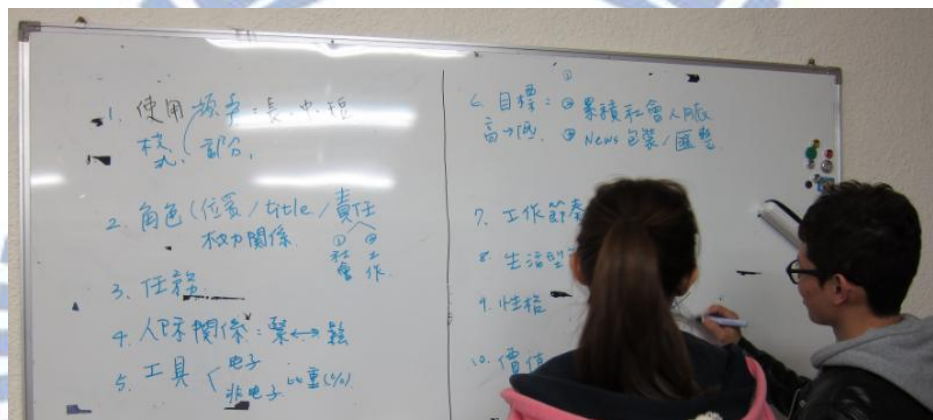 1. 使用頻率：長、中、短
校外 / 部分
2. 角色 (位置 / title / 責任
权力關係
① 社會 ② 工作
3. 任務
4. 人际關係：緊 ↔ 鬆
5. 工具 < 电子
非电子 比重(%)
①
6. 目標：② 累積社會人脈
高→低 ③ News 包裝 / 匯整
7. 工作節奏
8. 生活型
9. 性格
10. 價值